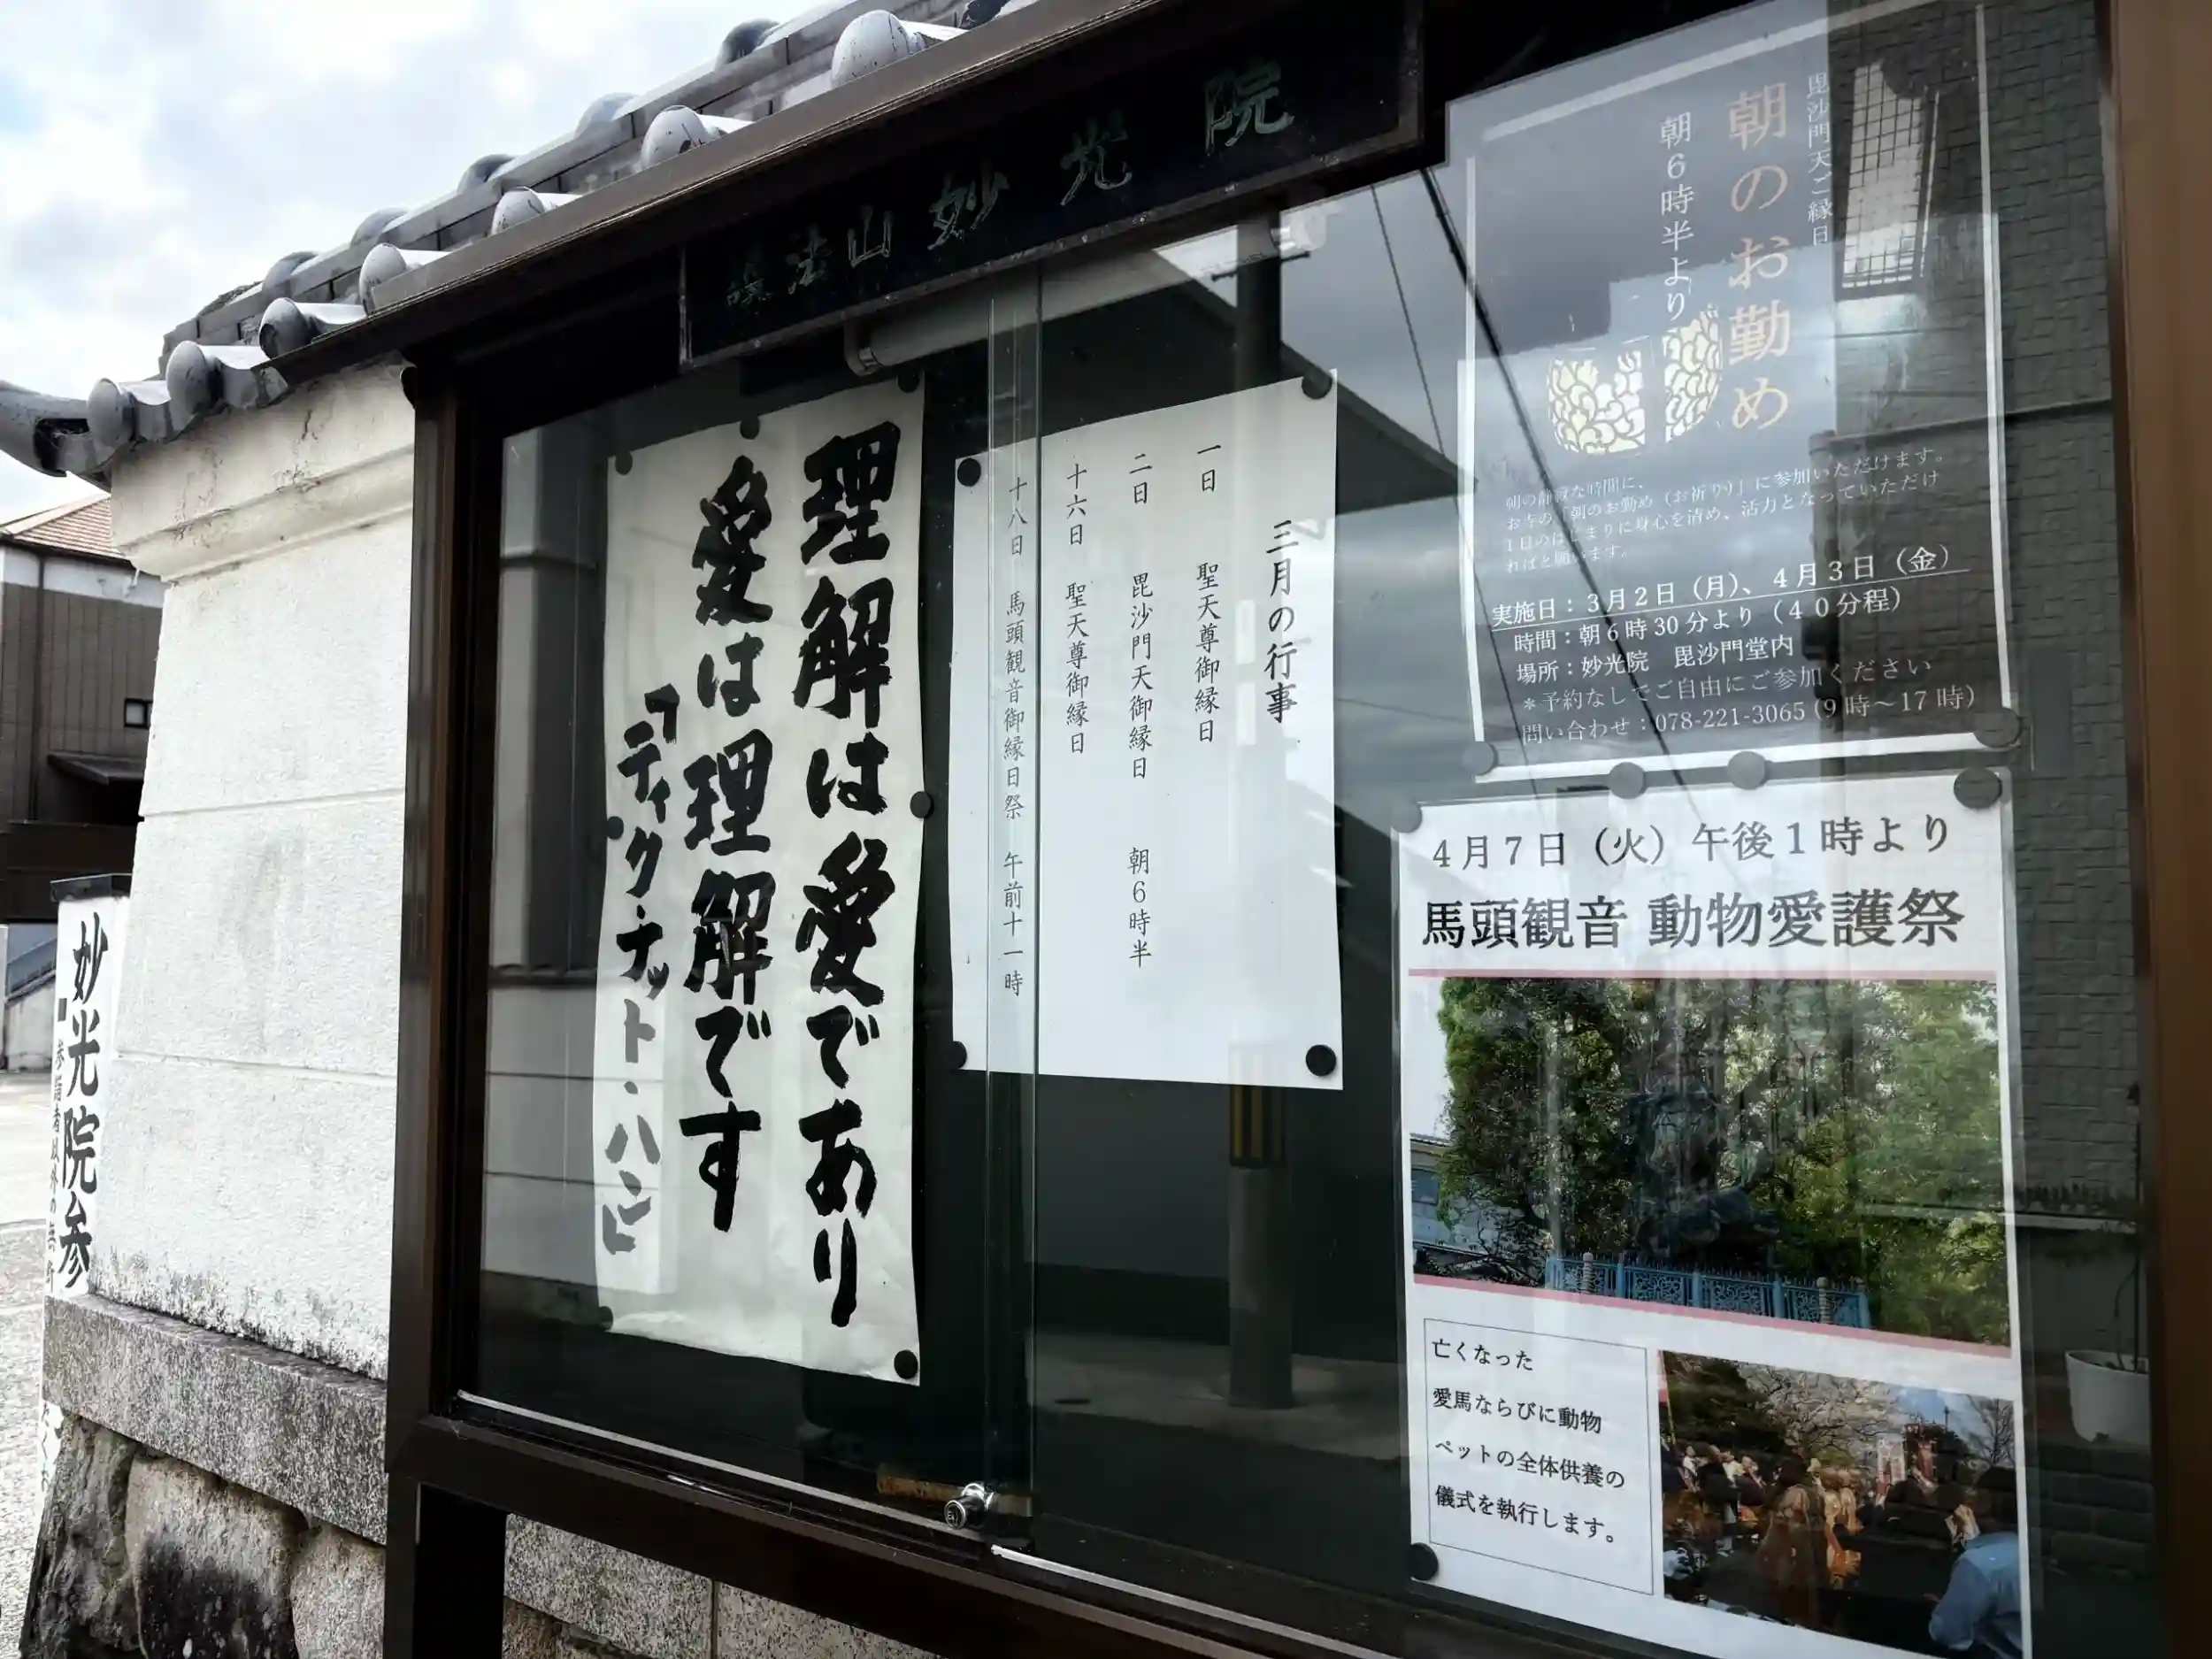 護法山 妙光院
理解は愛であり
愛は理解です
「ティク・ナット・ハン」
三月の行事
一日 聖天尊御縁日
二日 毘沙門天御縁日 朝6時半
十六日 聖天尊御縁日
十八日 馬頭観音御縁日祭 午前十一時
毘沙門天ご縁日
朝のお勤め
朝6時半より
朝の静寂な時間に、
お寺の「朝のお勤め（お祈り）」に参加いただけます。
1日のはじまりに身心を清め、活力となっていただけ
ればと願います。
実施日：3月2日（月）、4月3日（金）
時間：朝6時30分より（40分程）
場所：妙光院 毘沙門堂内
＊予約なしでご自由にご参加ください
問い合わせ：078-221-3065（9時～17時）
4月7日（火）午後1時より
馬頭観音 動物愛護祭
亡くなった
愛馬ならびに動物
ペットの全体供養の
儀式を執行します。
妙光院参
参詣者以外の無断